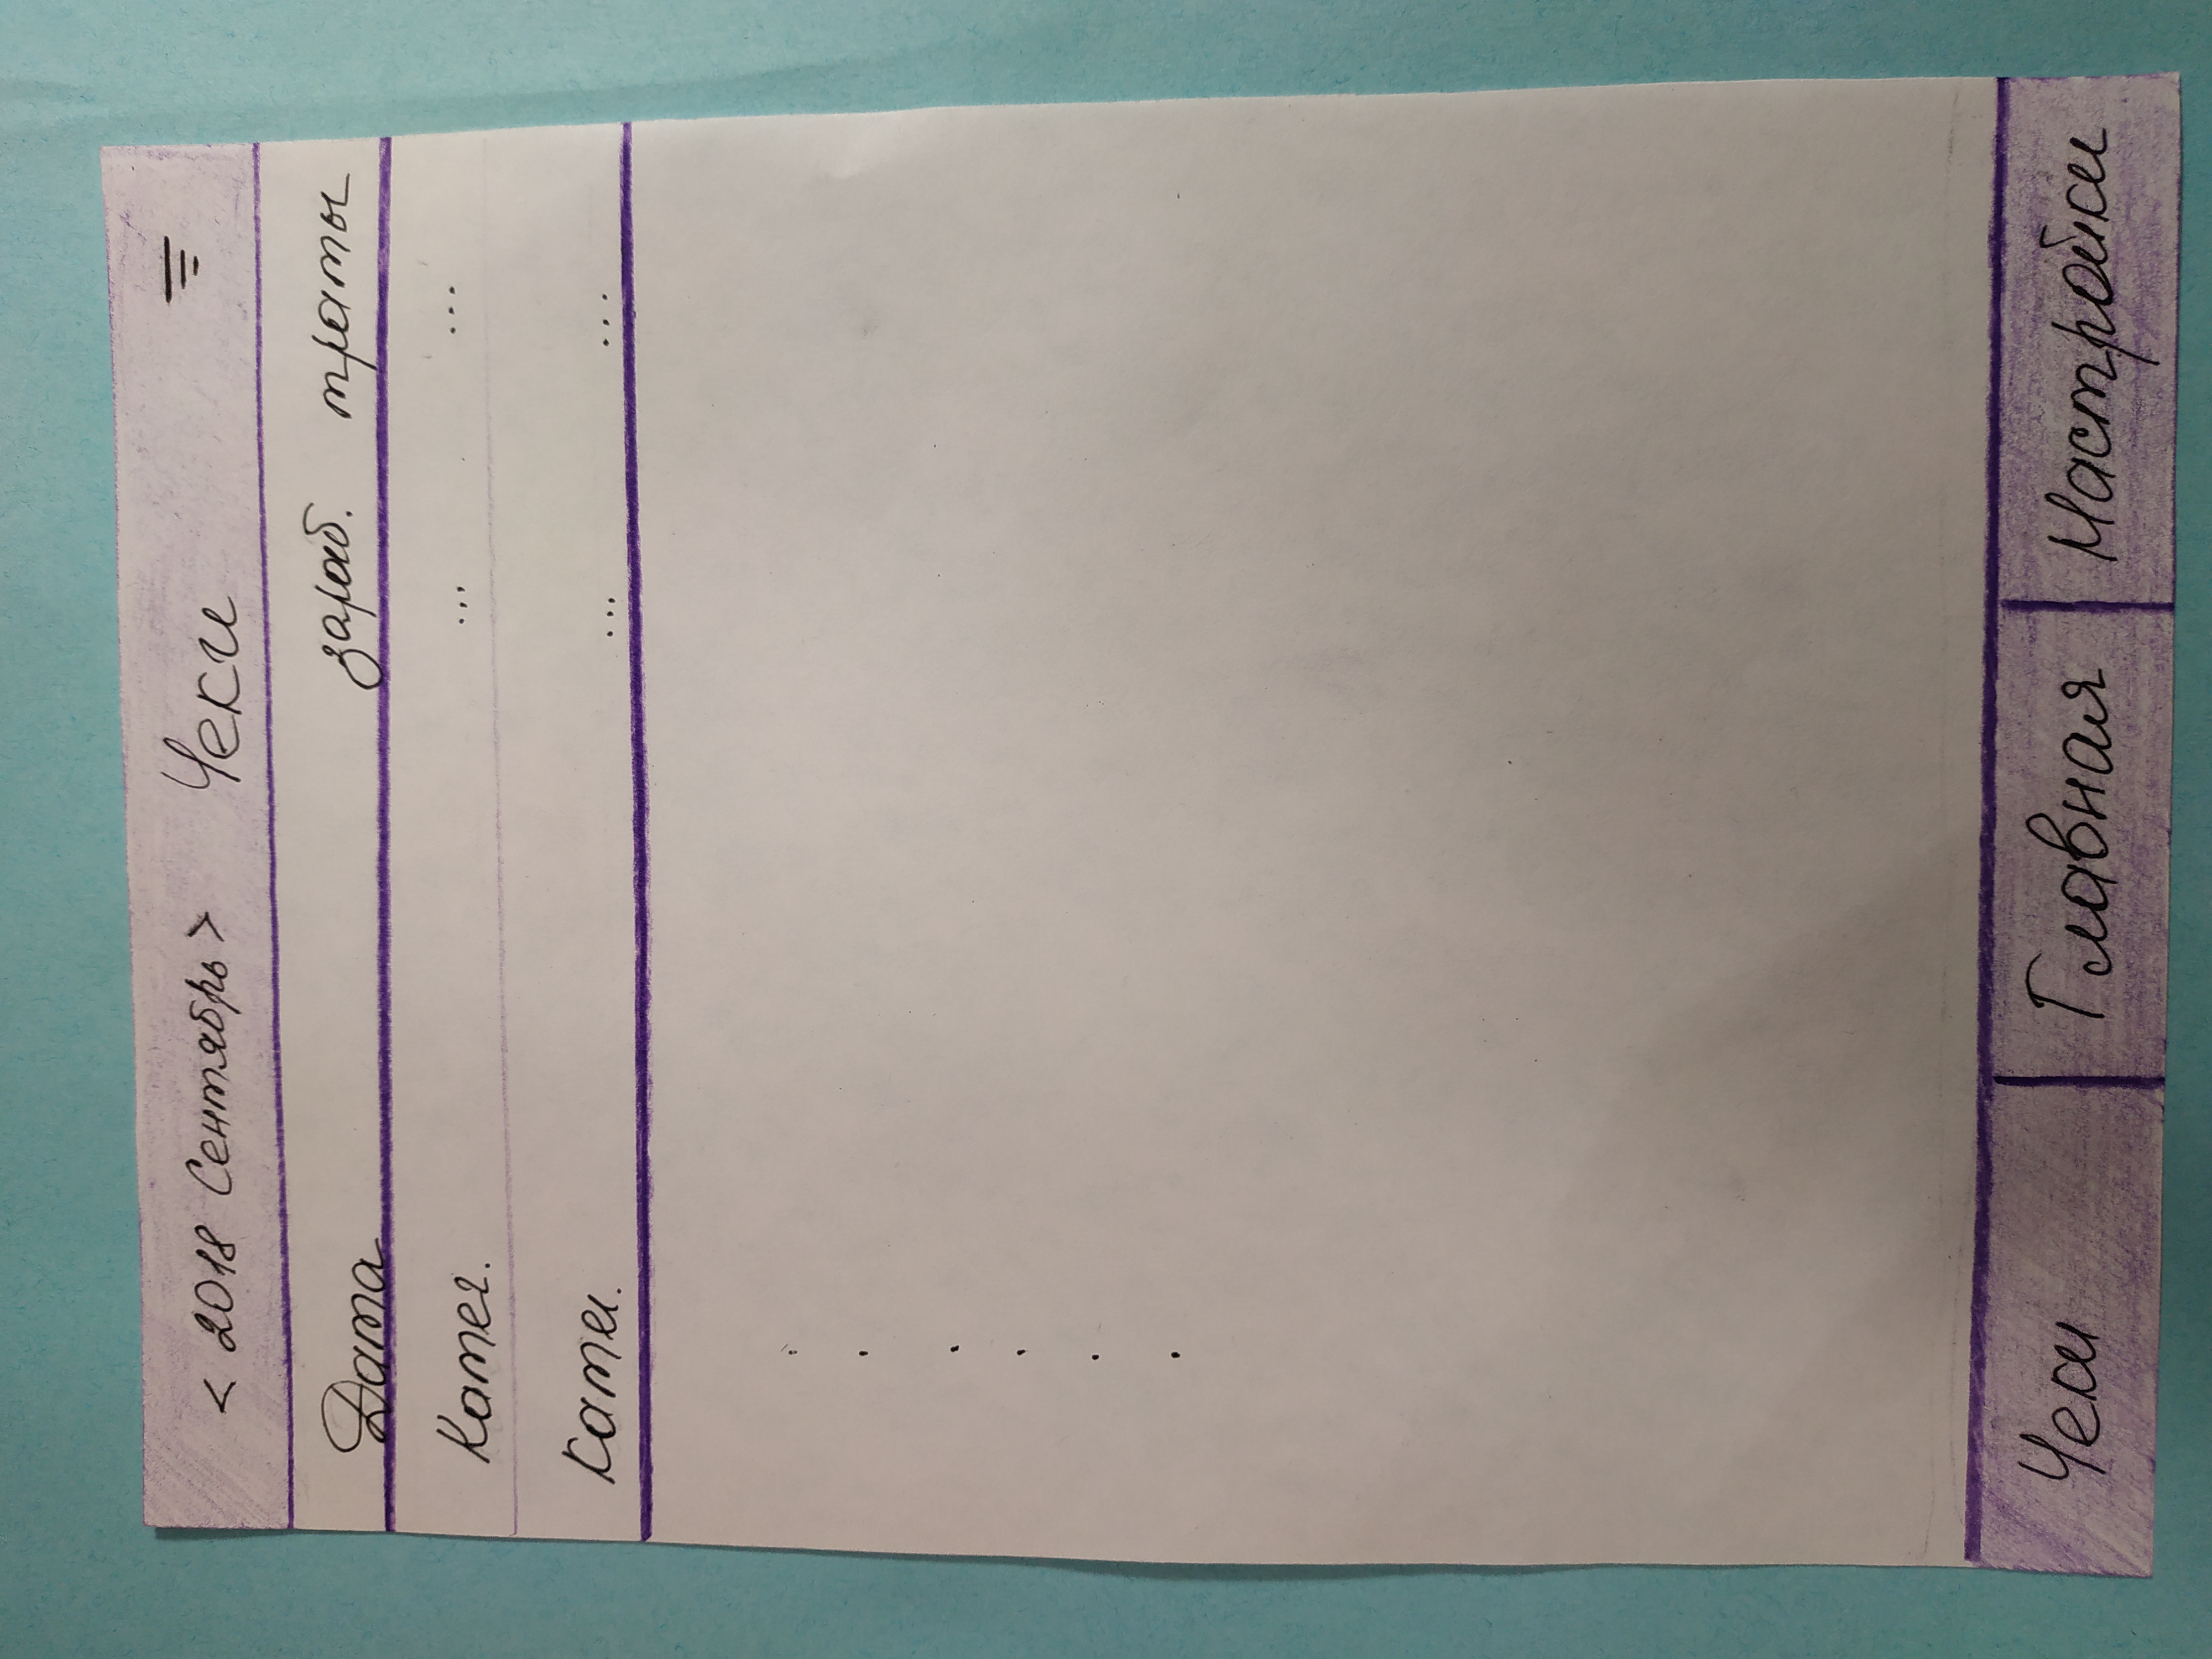 < 2018 Сентябрь > Чеки
Дата зараб. траты
Катег. ... ...
Катег. ... ...
Чеки Главная Настройки